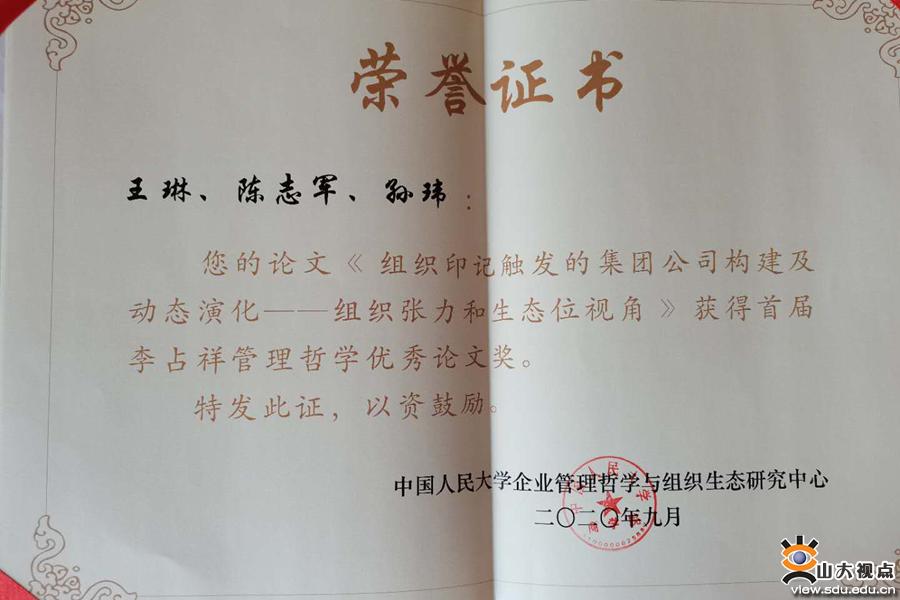 荣誉证书
王琳、陈志军、孙玮：
您的论文《组织印记触发的集团公司构建及
动态演化——组织张力和生态位视角》获得首届
李占祥管理哲学优秀论文奖。
特发此证，以资鼓励。
中国人民大学企业管理哲学与组织生态研究中心
二〇二〇年九月
山大视点
view.sdu.edu.cn